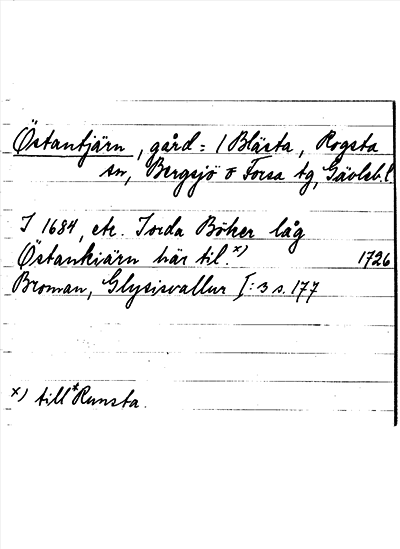 Östantjärn, gård: i Blästa, Rogsta
sn, Bergsjö o Forsa tg, Gävleb.l.
I 1684, etc. Iorda Böker låg
Östankiärn här til.x) 1726
Broman, Glysisvallur I:3 s. 177
x) till *Runsta.